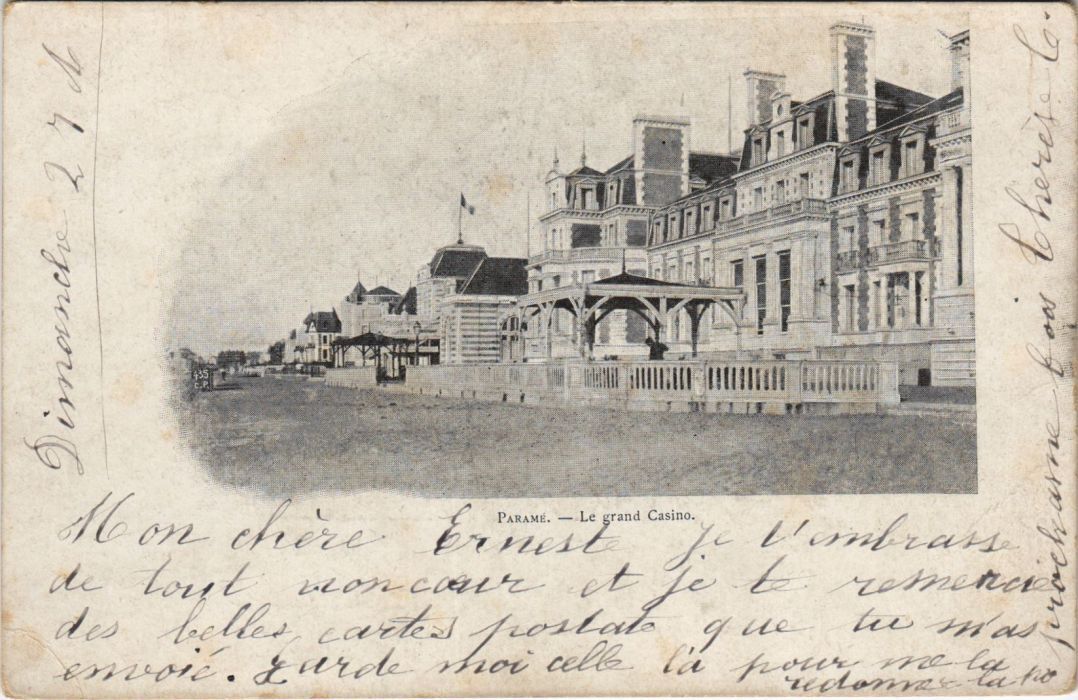 Dimanche 27
435
C.P.
PARAMÉ. — Le grand Casino.
Mon chère Ernest Je t'embrasse
de tout mon cœur et je te remercie
des belles cartes postale que tu m'as
envoié. Garde moi celle la pour me la
redonner la
prochaine fois Cherèse